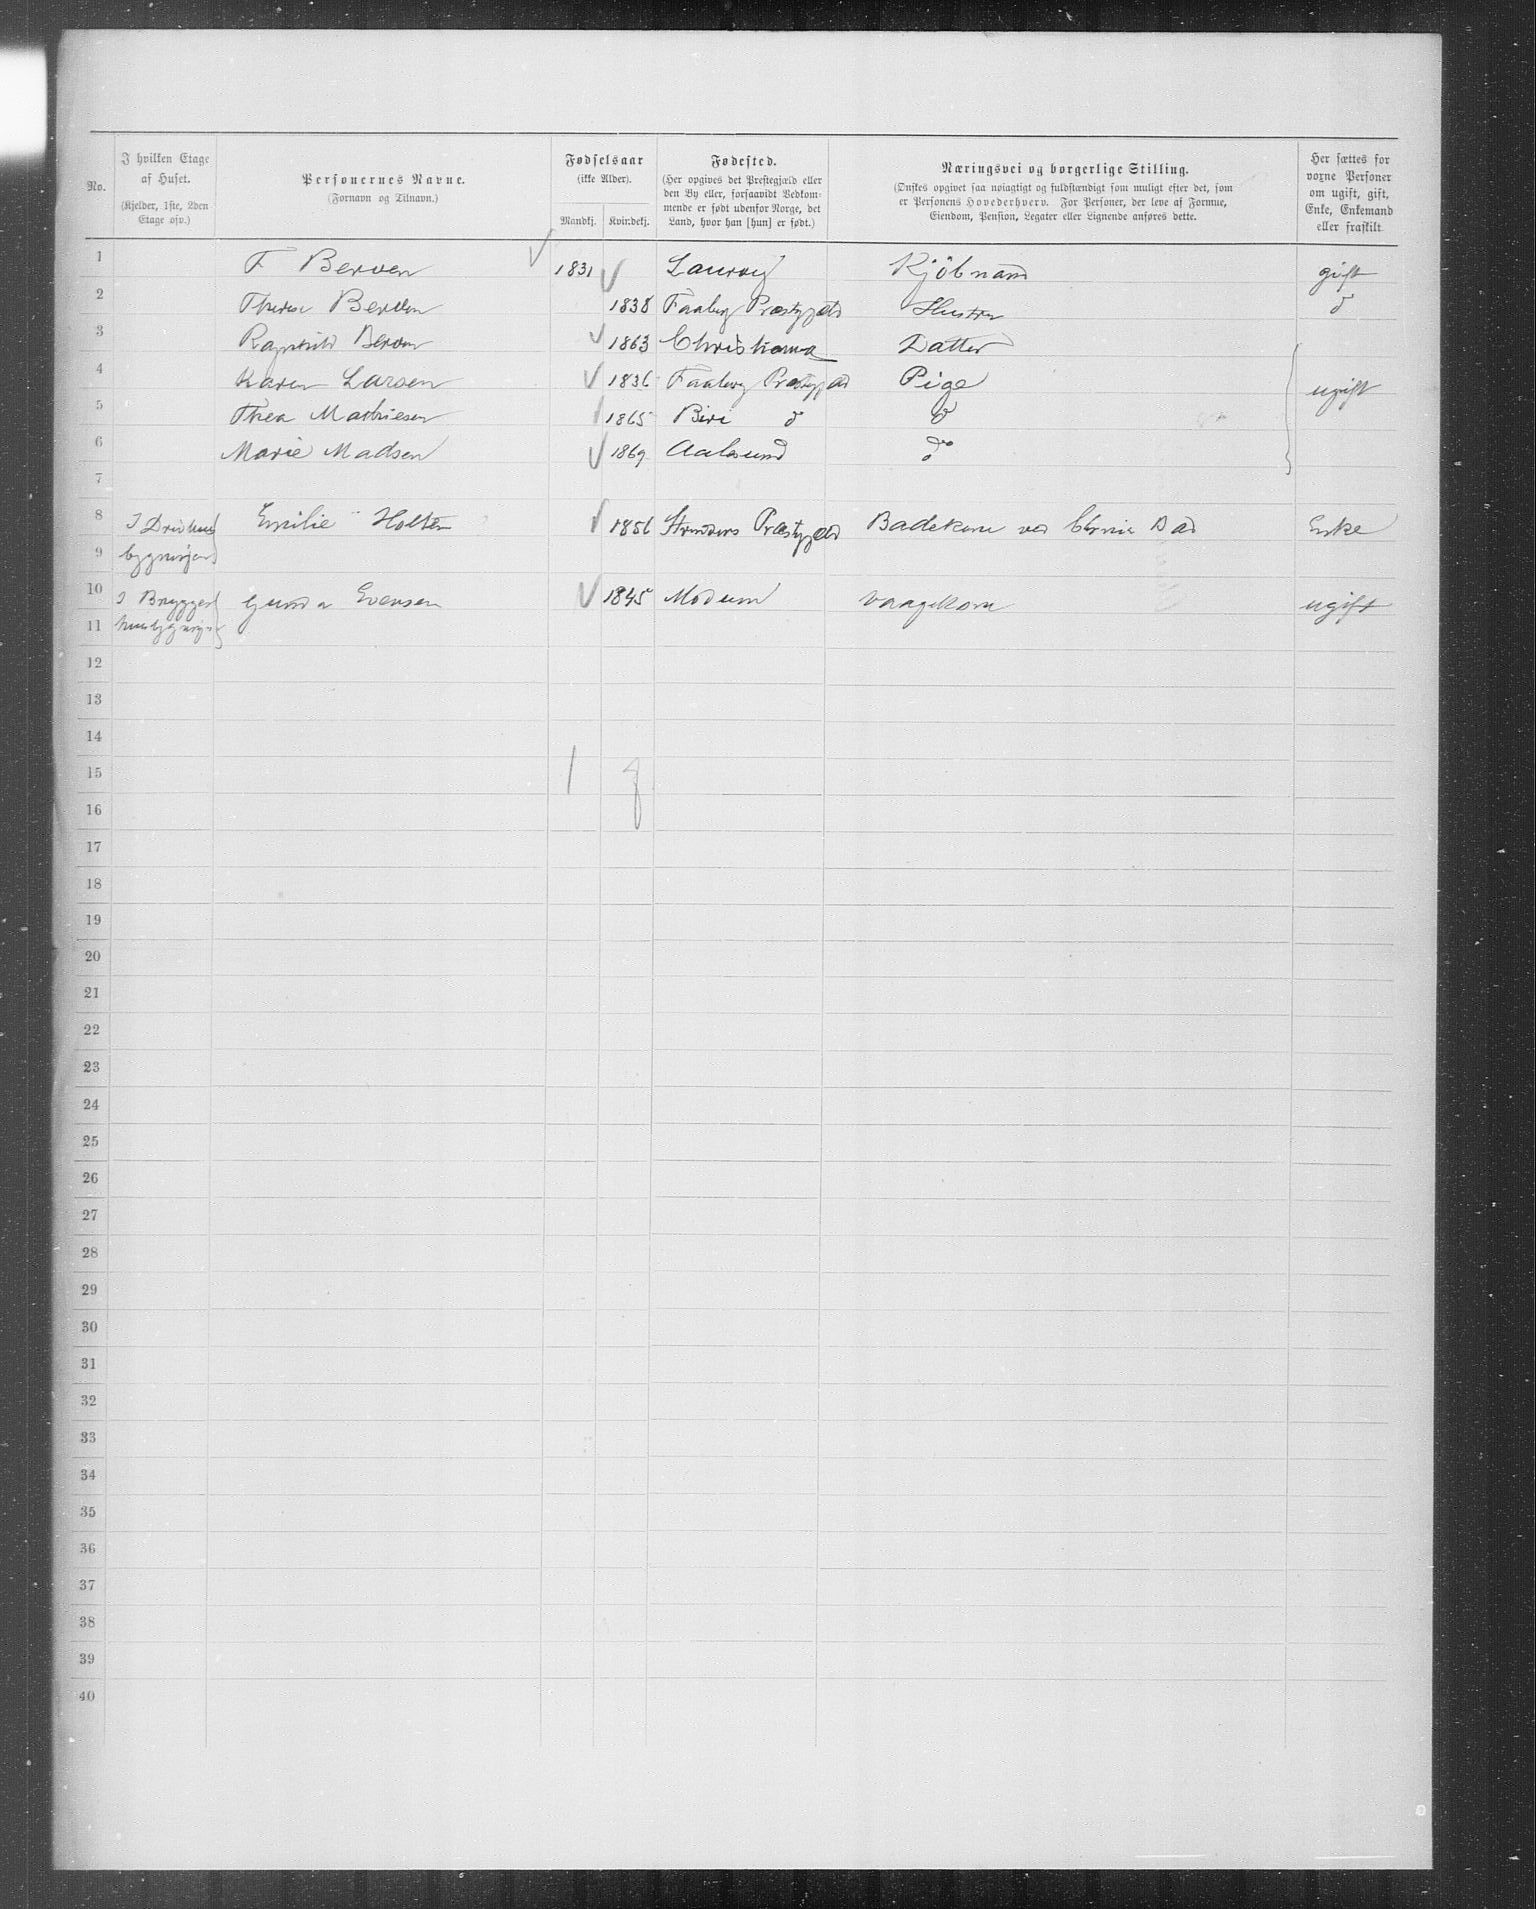 No.
I hvilken Etage af Huset.
(Kjelder, 1ste, 2den Etage osv.)
Personernes Navne.
(Fornavn og Tilnavn.)
Fødselsaar
(ikke Alder).
Mandkj.
Kvindekj.
Fødested.
(Her opgives det Prestegjæld eller
den By eller, forsaavidt Vedkom-
mende er født udenfor Norge, det
Land, hvor han [hun] er født.)
Næringsvei og borgerlige Stilling.
(Ønskes opgivet saa nøiagtigt og fuldstændigt som muligt efter det, som
er Personens Hovederhverv. For Personer, der leve af Formue,
Eiendom, Pension, Legater eller Lignende anføres dette.
Her sættes for
voxne Personer
om ugift, gift,
Enke, Enkemand
eller fraskilt
1 F Berven 1831 Laurvig Kjöbmand gift
2 Therese Berven 1838 Faaberg Præstegjæld Hustru do
3 Ragnhild Berven 1863 Christiania Datter
4 Karen Larsen 1836 Faaberg Præstegjæld Pige ugift
5 Thea Mathiesen 1865 Biri do do
6 Marie Madsen 1869 Aalesund do
7
8 I Drivhus Emilie Holten 1856 Præstegjæld Badekone ved Bad Enke
9 bygningen
10 I Brygger Gunda Evensen 1845 Modum Vaagekone ugift
11
12
13
14
15 1 8
16
17
18
19
20
21
22
23
24
25
26
27
28
29
30
31
32
33
34
35
36
37
38
39
40